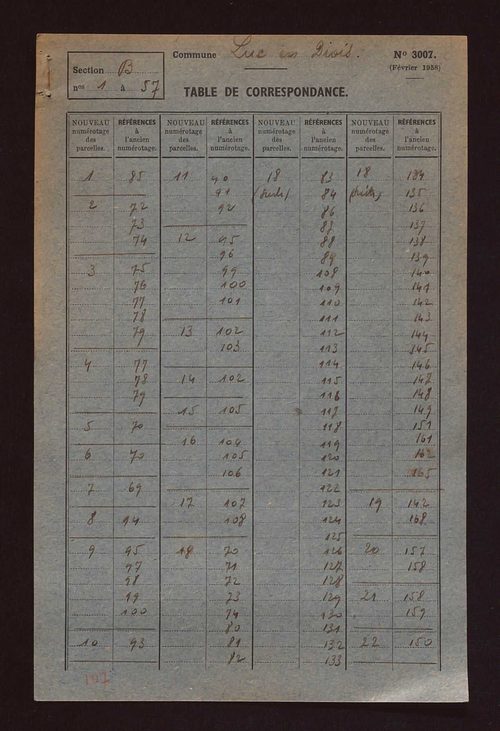 Commune Luc en Diois.
Nº 3007.
(Février 1938)
Section B
nos 1 à 57
TABLE DE CORRESPONDANCE.
NOUVEAU numérotage des parcelles. RÉFÉRENCES à l'ancien numérotage. NOUVEAU numérotage des parcelles. RÉFÉRENCES à l'ancien numérotage. NOUVEAU numérotage des parcelles. RÉFÉRENCES à l'ancien numérotage. NOUVEAU numérotage des parcelles. RÉFÉRENCES à l'ancien numérotage.
1 85 11 90 18 83 18 134
91 (suite) 84 (suite) 135
2 72 92 86 136
73 87 137
74 12 95 88 138
96 89 139
3 75 99 108 140
76 100 109 141
77 101 110 142
78 111 143
79 13 102 112 144
103 113 145
4 77 114 146
78 14 102 115 147
79 116 148
15 105 117 149
5 70 118 151
16 104 119 161
6 70 105 120 162
106 121 165
7 69 122
17 107 123 19 142
8 94 108 124 168
125
9 95 18 70 126 20 157
97 71 127 158
98 72 128
99 73 129 21 158
100 74 130 159
80 131
10 93 81 132 22 150
82 133
107